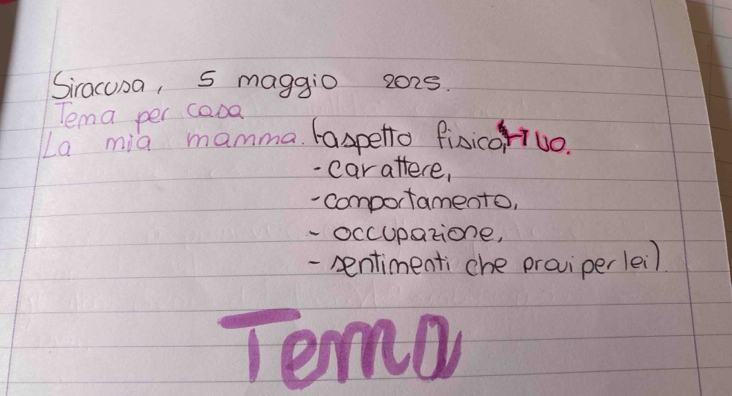 Siracusa, 5 maggio 2025.
Tema per casa
La mia mamma. (-aspetto fisico, TUO.
-carattere,
-comportamento,
- occupazione,
- sentimenti che provi per lei)
Tema